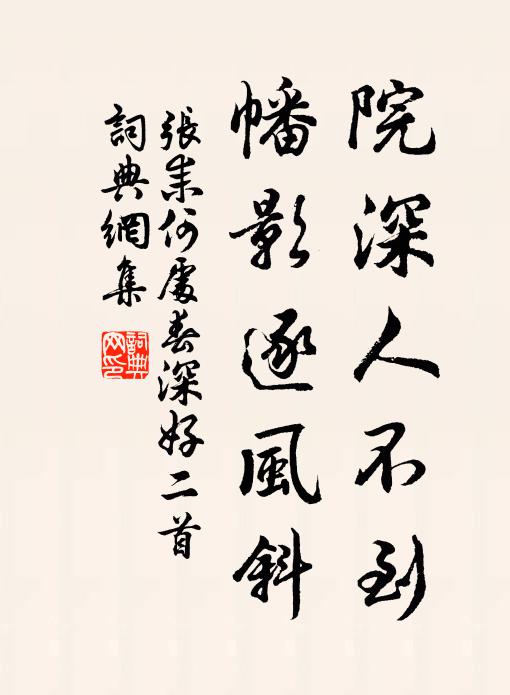 院深人不到
幡影逐風斜
張耒何處春深好二首
詞典網集
詞典
网印